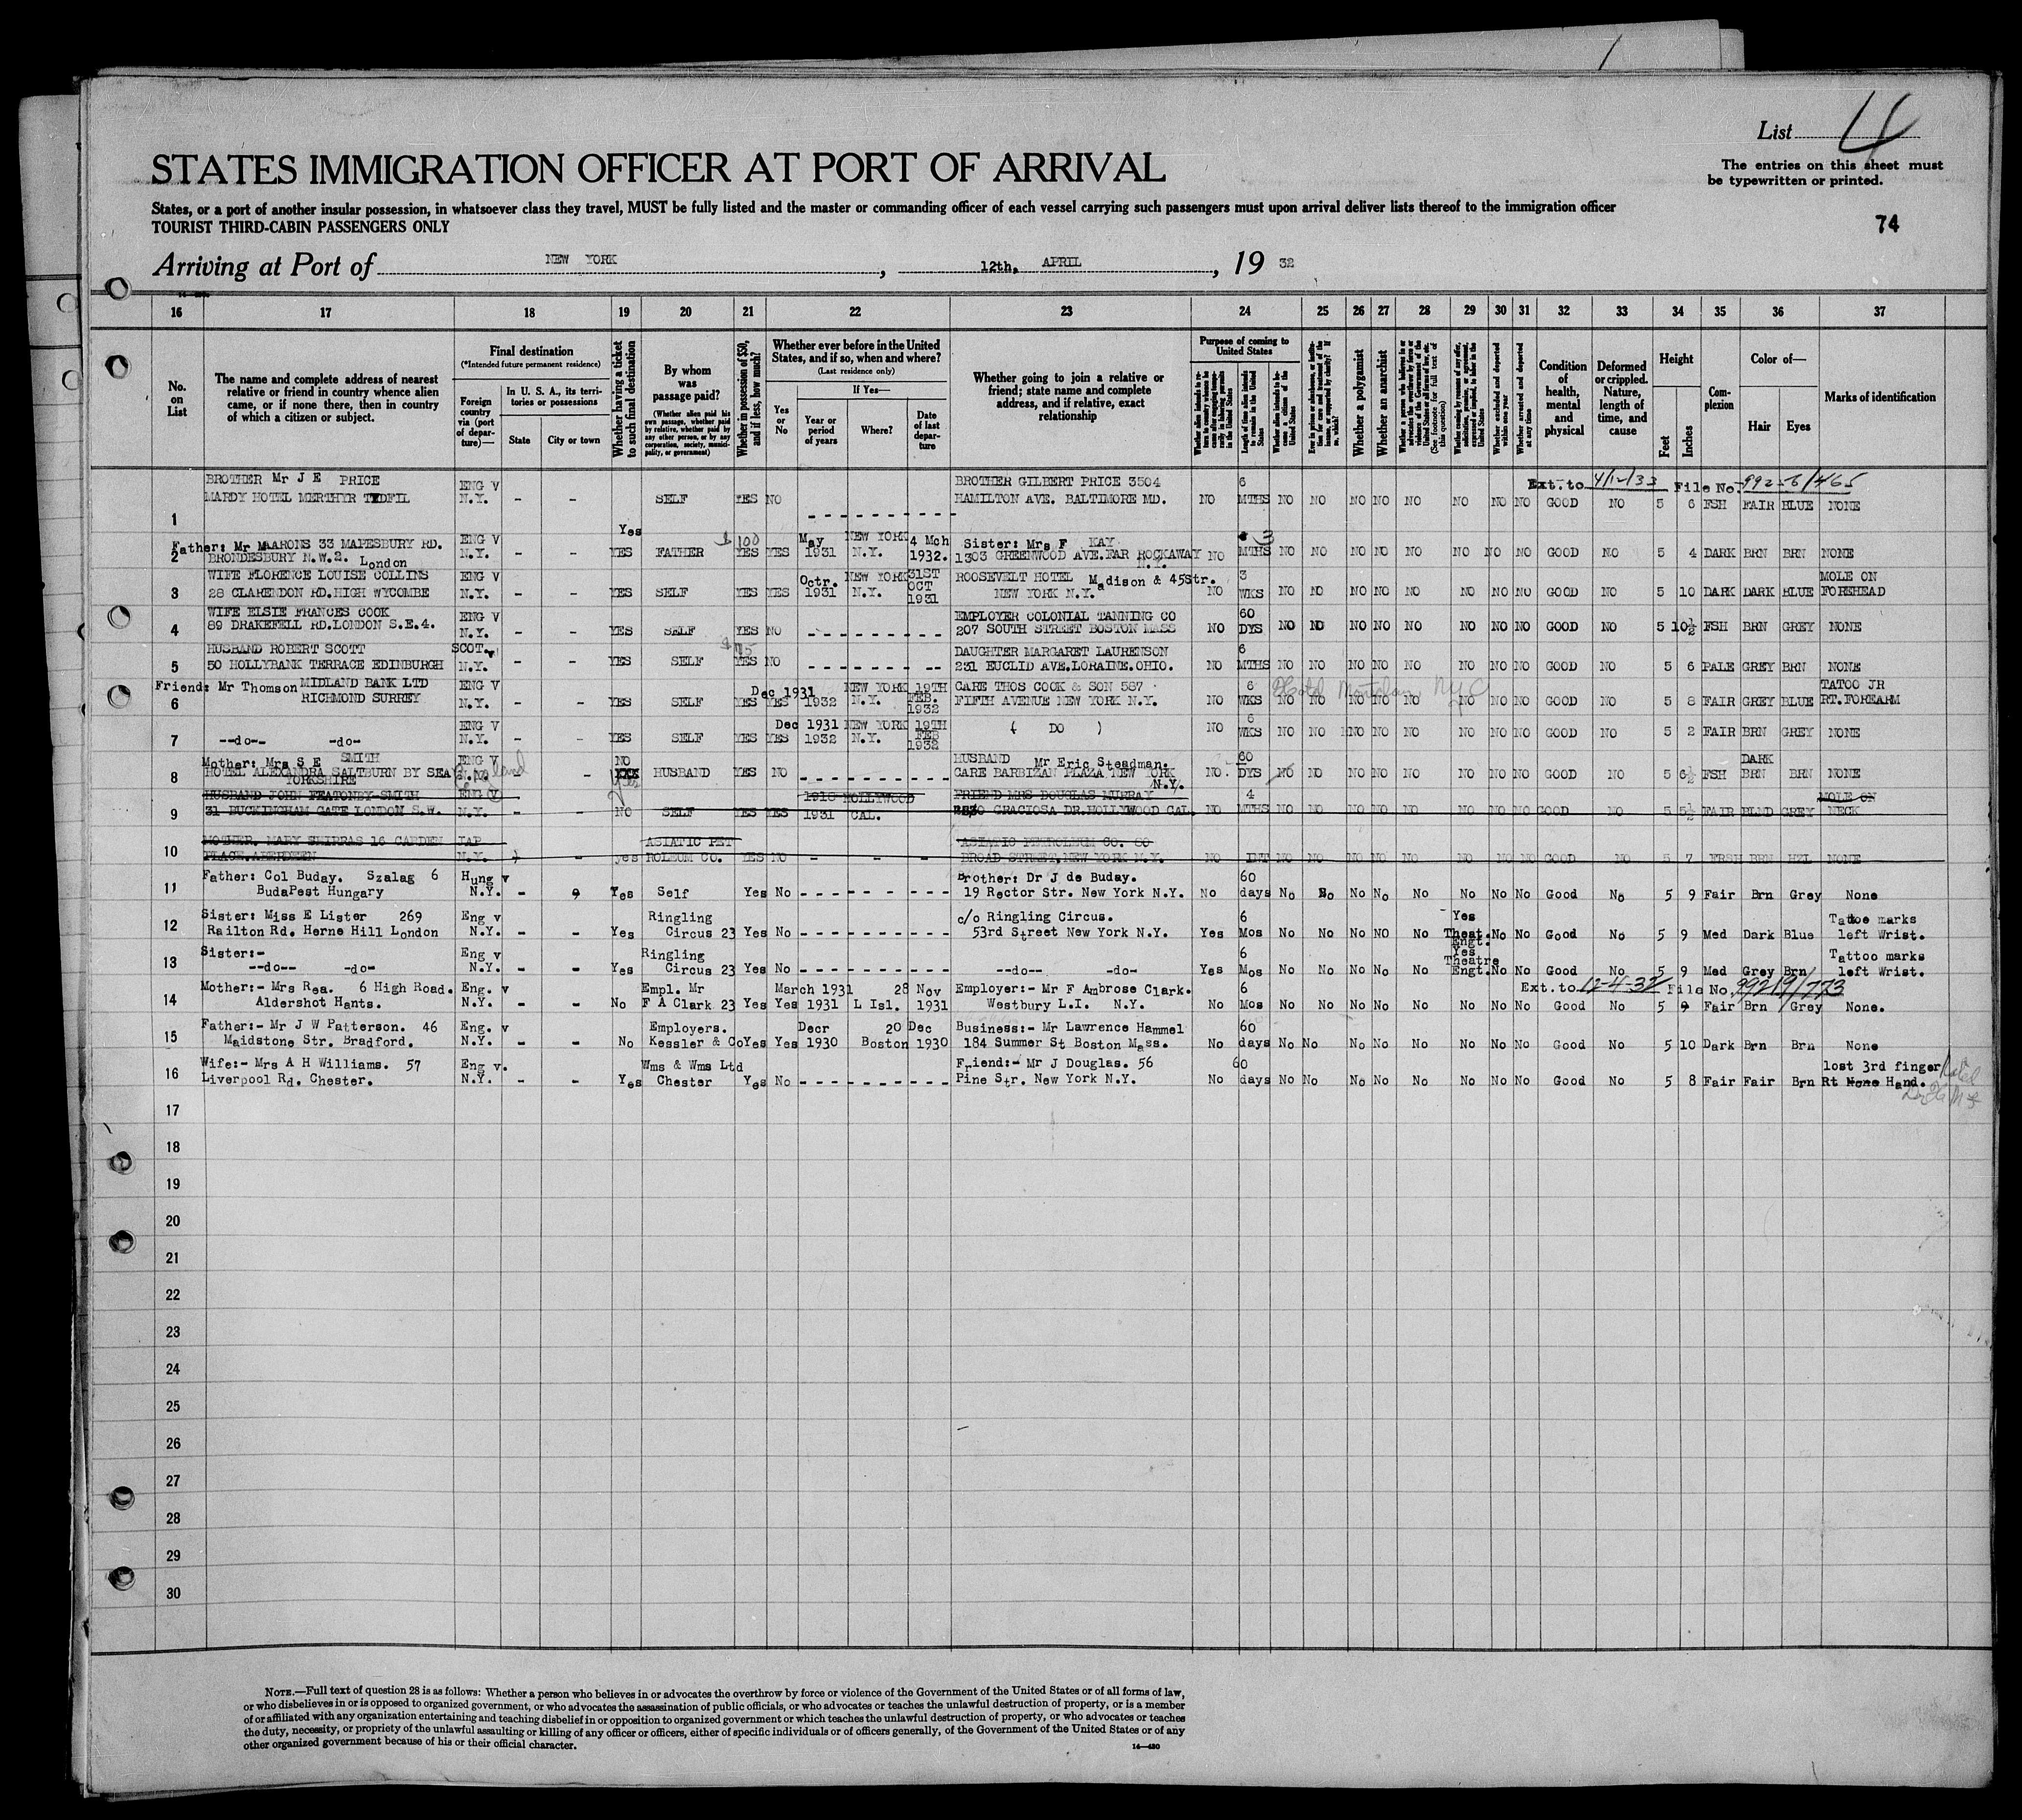 List 4
STATES IMMIGRATION OFFICER AT PORT OF ARRIVAL
The entries on this sheet must
be typewritten or printed.
States, or a port of another insular possession, in whatsoever class they travel, MUST be fully listed and the master or commanding officer of each vessel carrying such passengers must upon arrival deliver lists thereof to the immigration officer
TOURIST THIRD-CABIN PASSENGERS ONLY
74
Arriving at Port of NEW YORK, 12th, APRIL, 19 32
16 17 18 19 20 21 22 23 24 25 26 27 28 29 30 31 32 33 34 35 36 37
No. on List
The name and complete address of nearest relative or friend in country whence alien came, or if none there, then in country of which a citizen or subject.
Final destination
(*Intended future permanent residence)
Foreign country via (port of departure)—
In U. S. A., its territories or possessions
State
City or town
Whether having a ticket to such final destination
By whom was passage paid?
(Whether alien paid his own passage, whether paid by relative, whether paid by any other person, or by any corporation, society, municipality, or government)
Whether in possession of $50, and if less, how much?
Whether ever before in the United States, and if so, when and where?
(Last residence only)
Yes or No
If Yes—
Year or period of years
Where?
Date of last departure
Whether going to join a relative or friend; state name and complete address, and if relative, exact relationship
Purpose of coming to United States
Length of time alien intends to remain in the United States
Whether alien intends to become a citizen of the United States
Whether a polygamist
Whether an anarchist
Whether excluded and deported within one year
Whether arrested and deported at any time
Condition of health, mental and physical
Deformed or crippled. Nature, length of time, and cause
Height
Feet
Inches
Complexion
Color of—
Hair
Eyes
Marks of identification
BROTHER Mr J E PRICE ENG V BROTHER GILBERT PRICE 3504 6 Ext. to 4/12/33 File No.
1 MARDY HOTEL MERTHYR TYDFIL N.Y. - - Yes SELF YES NO HAMILTON AVE. BALTIMORE MD. NO MTHS NO NO NO NO NO NO NO NO GOOD NO 5 6 FSH FAIR BLUE NONE
Father: Mr M AARONS 33 MAPESBURY RD. ENG V $100 May NEW YORK 4 Mch Sister: Mrs F KAY 3
2 BRONDESBURY N.W.2. London N.Y. - - YES FATHER YES YES 1931 N.Y. 1932. 1303 GREENWOOD AVE. FAR ROCKAWAY N.Y. NO MTHS NO NO NO NO NO NO NO NO GOOD NO 5 4 DARK BRN BRN NONE
WIFE FLORENCE LOUISE COLLINS ENG V Octr. NEW YORK 31ST OCT ROOSEVELT HOTEL Madison & 45Str. 3 MOLE ON
3 28 CLARENDON RD. HIGH WYCOMBE N.Y. - - YES SELF YES YES 1931 N.Y. 1931 NEW YORK N.Y. NO WKS NO NO NO NO NO NO NO NO GOOD NO 5 10 DARK DARK BLUE FOREHEAD
WIFE ELSIE FRANCES COOK ENG V EMPLOYER COLONIAL TANNING CO 60
4 89 DRAKEFELL RD. LONDON S.E.4. N.Y. - - YES SELF YES NO 207 SOUTH STREET BOSTON MASS NO DYS NO NO NO NO NO NO NO NO GOOD NO 5 10½ FSH BRN GREY NONE
HUSBAND ROBERT SCOTT SCOT. v DAUGHTER MARGARET LAURENSON 6
5 50 HOLLYBANK TERRACE EDINBURGH N.Y. - - YES SELF YES NO 231 EUCLID AVE. LORAINE. OHIO. NO MTHS NO NO NO NO NO NO NO NO GOOD NO 5 6 PALE GREY BRN NONE
Friend: Mr Thomson MIDLAND BANK LTD ENG V Dec 1931 NEW YORK 19TH FEB. CARE THOS COOK & SON 587 6 TATOO JR
6 RICHMOND SURREY N.Y. - - YES SELF YES YES 1932 N.Y. 1932 FIFTH AVENUE NEW YORK N.Y. NO WKS NO NO NO NO NO NO NO NO GOOD NO 5 8 FAIR GREY BLUE RT. FOREARM
ENG V Dec 1931 NEW YORK 19TH FEB 6
7 --do-- -do- N.Y. - - YES SELF YES YES 1932 N.Y. 1932 ( DO ) NO WKS NO NO NO NO NO NO NO NO GOOD NO 5 2 FAIR BRN GREY NONE
Mother: Mrs S E SMITH ENG V NO HUSBAND Mr Eric Steadman. 60 DARK
8 HOTEL ALEXANDRA SALTBURN BY SEA YORKSHIRE - - HUSBAND YES NO CARE BARBIZAN PLAZA NEW YORK N.Y. NO. DYS NO NO NO NO NO NO NO NO GOOD NO 5 6½ FSH BRN BRN NONE
HUSBAND JOHN FEATONBY-SMITH ENG V 1918 HOLLYWOOD FRIEND MRS DOUGLAS MURRAY 4 MOLE ON
9 31 BUCKINGHAM GATE LONDON S.W. N.Y. - - NO SELF YES YES 1931 CAL. GRACIOSA DR. HOLLYWOOD CAL. NO MTHS NO NO NO NO NO NO NO NO GOOD NO 5 5½ FAIR BLND GREY NECK
MOTHER, MARY SKIRRAS 16 CAMDEN JAP ASIATIC PET ASIATIC PETROLEUM CO. 80
10 PLACE. ABERDEEN N.Y. - yes ROLEUM CO. YES NO - - - BROAD STREET, NEW YORK N.Y. NO INT NO NO NO NO NO NO NO NO GOOD NO 5 7 FRSH BRN HZL NONE
Father: Col Buday. Szalag 6 Hung v Brother: Dr J de Buday. 60
11 BudaPest Hungary N.Y. - Yes Self Yes No 19 Rector Str. New York N.Y. No days No No No No No No No No Good No 5 9 Fair Brn Grey None
Sister: Miss E Lister 269 Eng v Ringling c/o Ringling Circus. 6 Yes Tattoe marks
12 Railton Rd. Herne Hill London N.Y. - - Yes Circus 23 Yes No 53rd Street New York N.Y. Yes Mos No No No NO No Theat. Engt. No No Good No 5 9 Med Dark Blue left Wrist.
Sister:- Eng v Ringling 6 Yes Theatre Tattoo marks
13 --do-- -do- N.Y. - - Yes Circus 23 Yes No --do-- -do- Yes Mos No No No No No Engt. No No Good No 5 9 Med Grey Brn left Wrist.
Mother:- Mrs Rea. 6 High Road. Eng. v Empl. Mr March 1931 28 Nov Employer:- Mr F Ambrose Clark. 6 Ext. to 12-4-32 File No. 99219/773
14 Aldershot Hants. N.Y. - - No F A Clark 23 Yes Yes 1931 L Isl. 1931 Westbury L.I. N.Y. No Mos No No No No No No No No Good No 5 9 Fair Brn Grey None.
Father:- Mr J W Patterson. 46 Eng. v Employers. Decr 20 Dec Business:- Mr Lawrence Hammel 60
15 Maidstone Str. Bradford. N.Y. - - No Kessler & Co Yes Yes 1930 Boston 1930 184 Summer St Boston Mass. No days No No No No No No No No Good No 5 10 Dark Brn Brn None
Wife:- Mrs A H Williams. 57 Eng v. Wms & Wms Ltd Friend:- Mr J Douglas. 56 60 lost 3rd finger
16 Liverpool Rd. Chester. N.Y. - - Yes Chester Yes No Pine Str. New York N.Y. No days No No No No No No No No Good No 5 8 Fair Fair Brn Rt None Hand.
17
18
19
20
21
22
23
24
25
26
27
28
29
30
NOTE.—Full text of question 28 is as follows: Whether a person who believes in or advocates the overthrow by force or violence of the Government of the United States or of all forms of law,
or who disbelieves in or is opposed to organized government, or who advocates the assassination of public officials, or who advocates or teaches the unlawful destruction of property, or is a member
of or affiliated with any organization entertaining and teaching disbelief in or opposition to organized government or which teaches the unlawful destruction of property, or who advocates or teaches
the duty, necessity, or propriety of the unlawful assaulting or killing of any officer or officers, either of specific individuals or of officers generally, of the Government of the United States or of any
other organized government because of his or their official character.
14—430